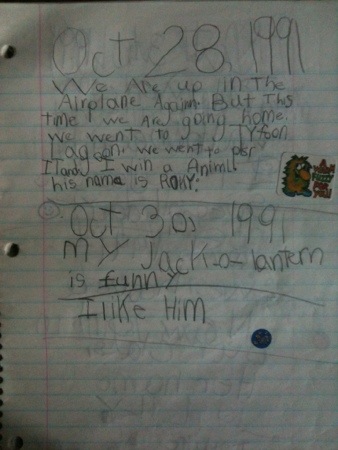 Oct 28, 1991
We Are up in The
Airplane Again. But This
time we Are going home.
we went to Tyfoon
Lagoon. we went to
I win a Animl.
his name is ROKY.
Oct 30, 1991
my Jack-o-lantern
is funny
I like Him